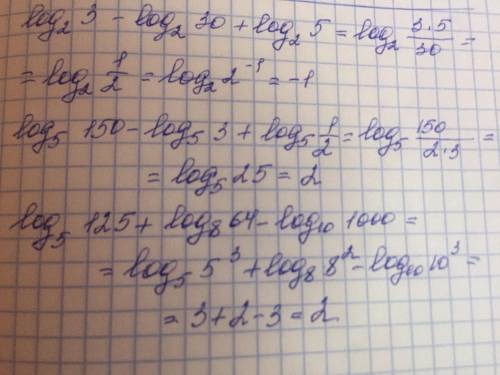 log₂ 3 - log₂ 30 + log₂ 5 = log₂ (3·5)/30 =
= log₂ 1/2 = log₂ 2⁻¹ = -1
log₅ 150 - log₅ 3 + log₅ 1/2 = log₅ 150/(2·3) =
= log₅ 25 = 2
log₅ 125 + log₈ 64 - log₁₀ 1000 =
= log₅ 5³ + log₈ 8² - log₁₀ 10³ =
= 3 + 2 - 3 = 2